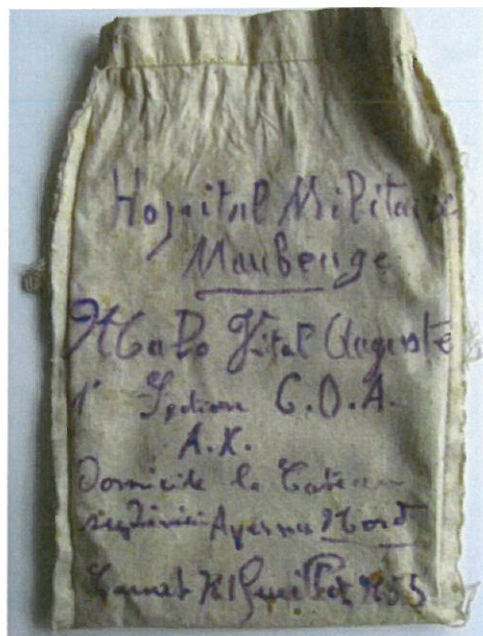 Hopital Militaire
Maubeuge
Vital Auguste
1e Section C.O.A.
A.K.
Domicile le Cateau
Avesnes Nord
Carnet